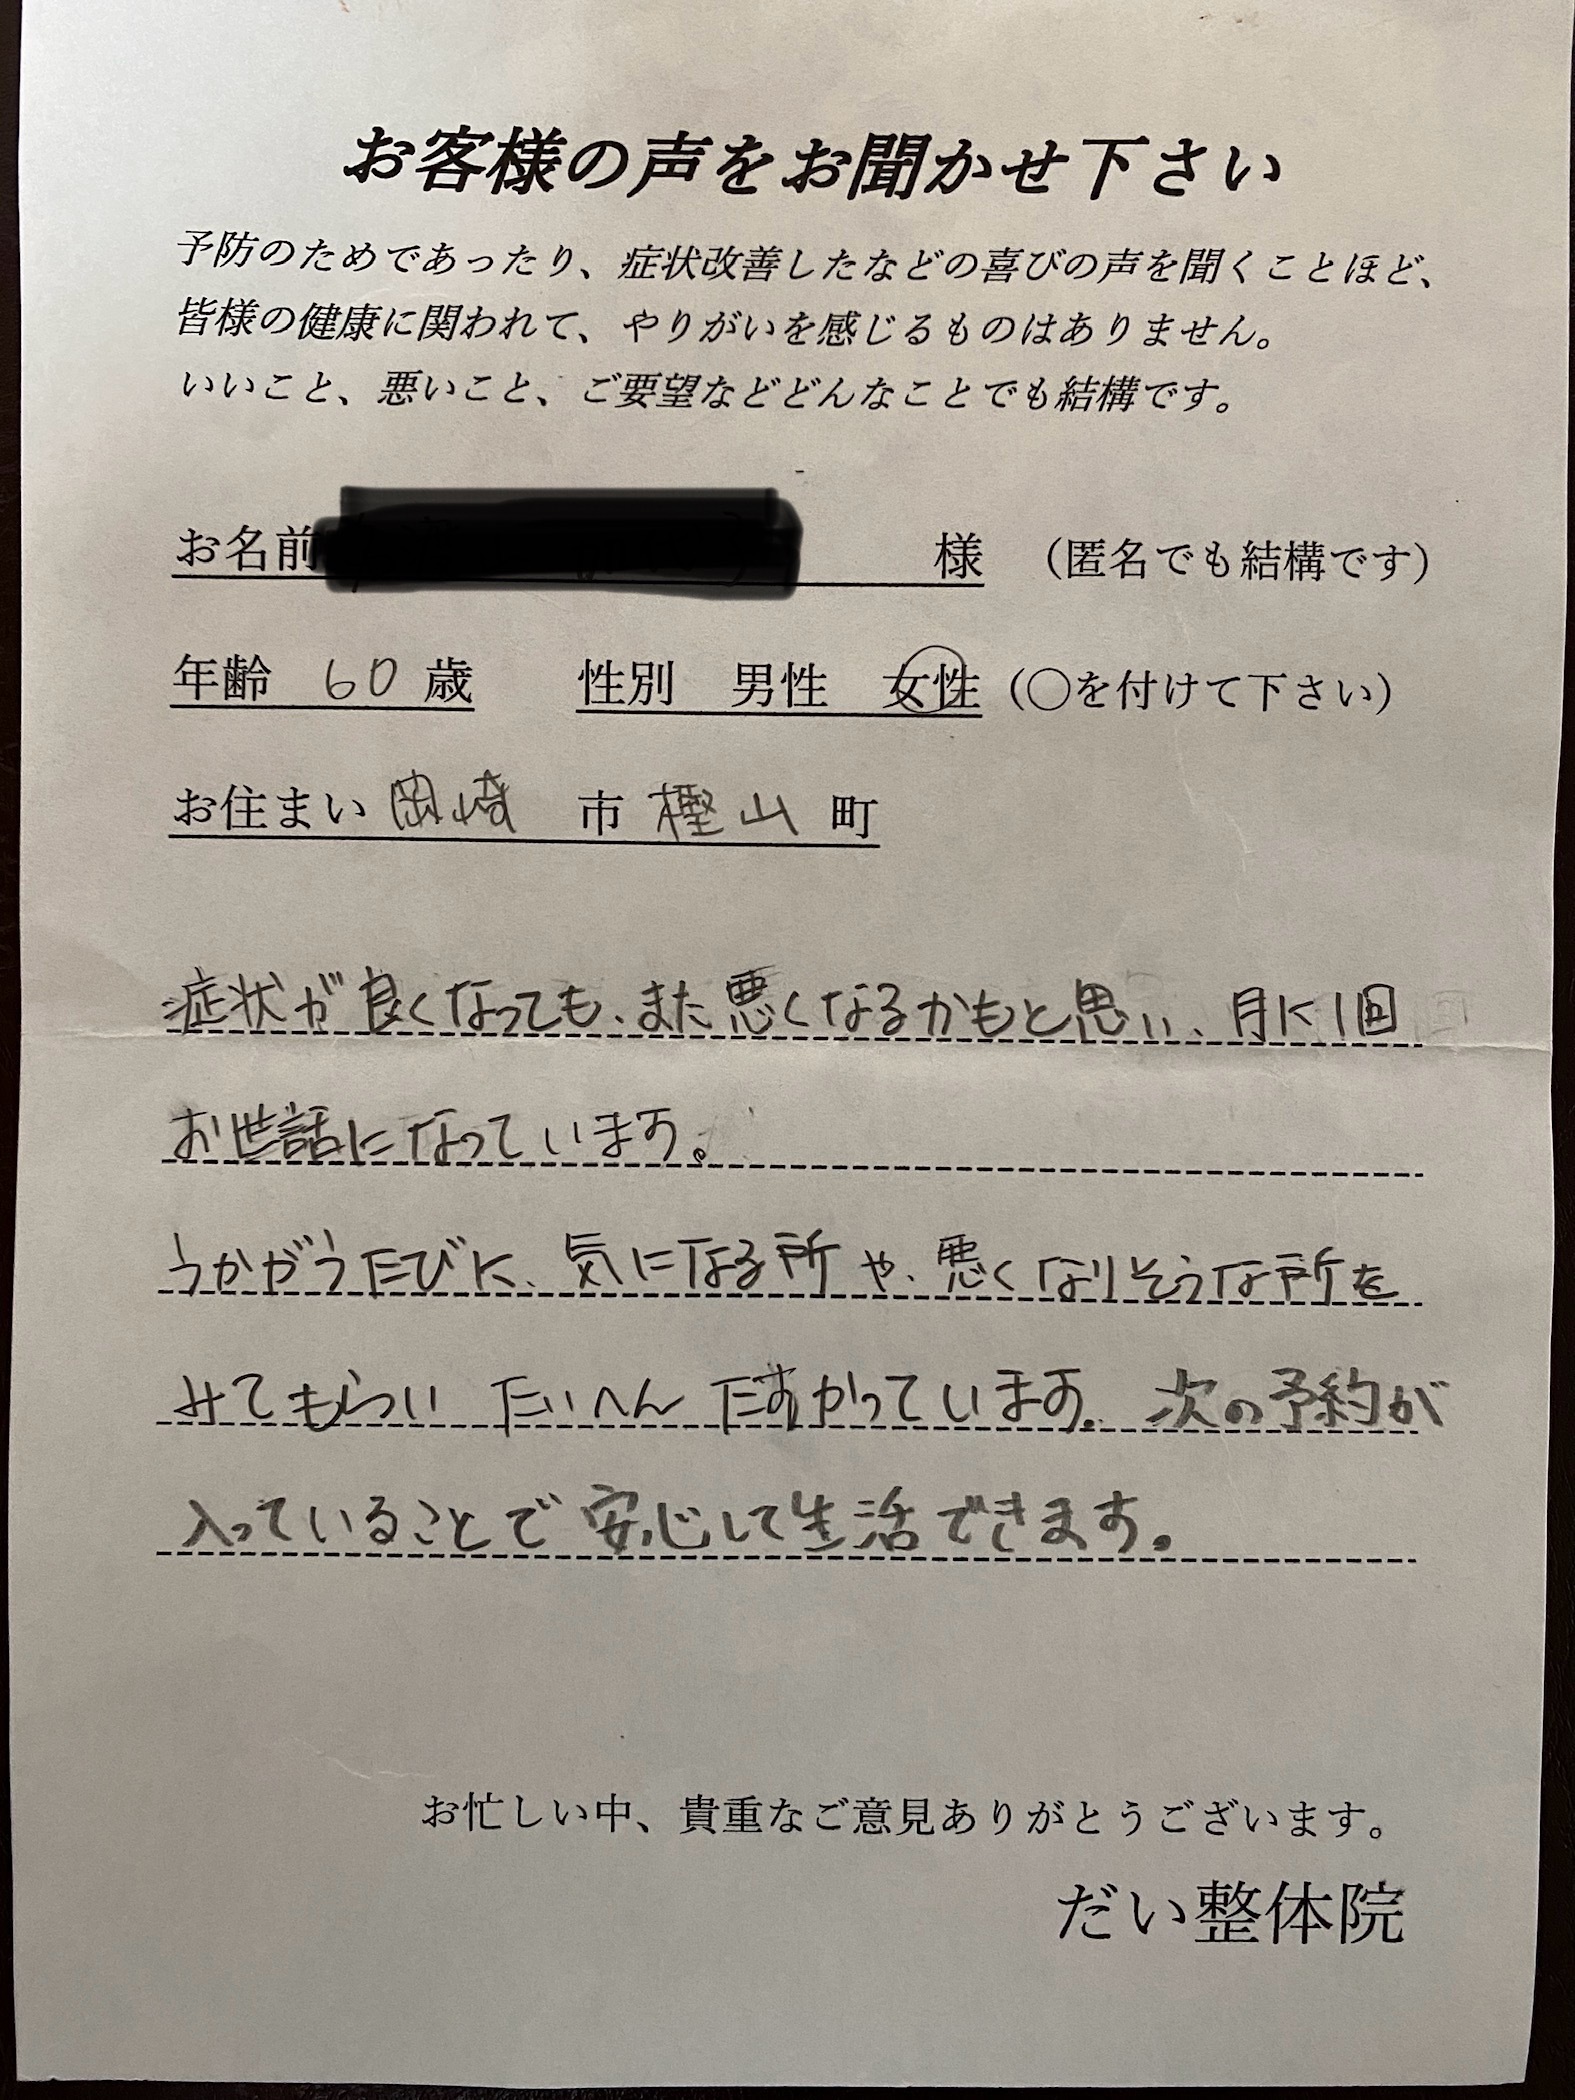 お客様の声をお聞かせ下さい
予防のためであったり、症状改善したなどの喜びの声を聞くことほど、
皆様の健康に関われて、やりがいを感じるものはありません。
いいこと、悪いこと、ご要望などどんなことでも結構です。
お名前 様 （匿名でも結構です）
年齢 60 歳 性別 男性 女性 （○を付けて下さい）
お住まい 岡崎 市 樫山 町
症状が良くなっても、また悪くなるかもと思い、月に1回
お世話になっています。
うかがうたびに、気になる所や、悪くなりそうな所を
みてもらい たいへん たすかっています。次の予約が
入っていることで安心して生活できます。
お忙しい中、貴重なご意見ありがとうございます。
だい整体院